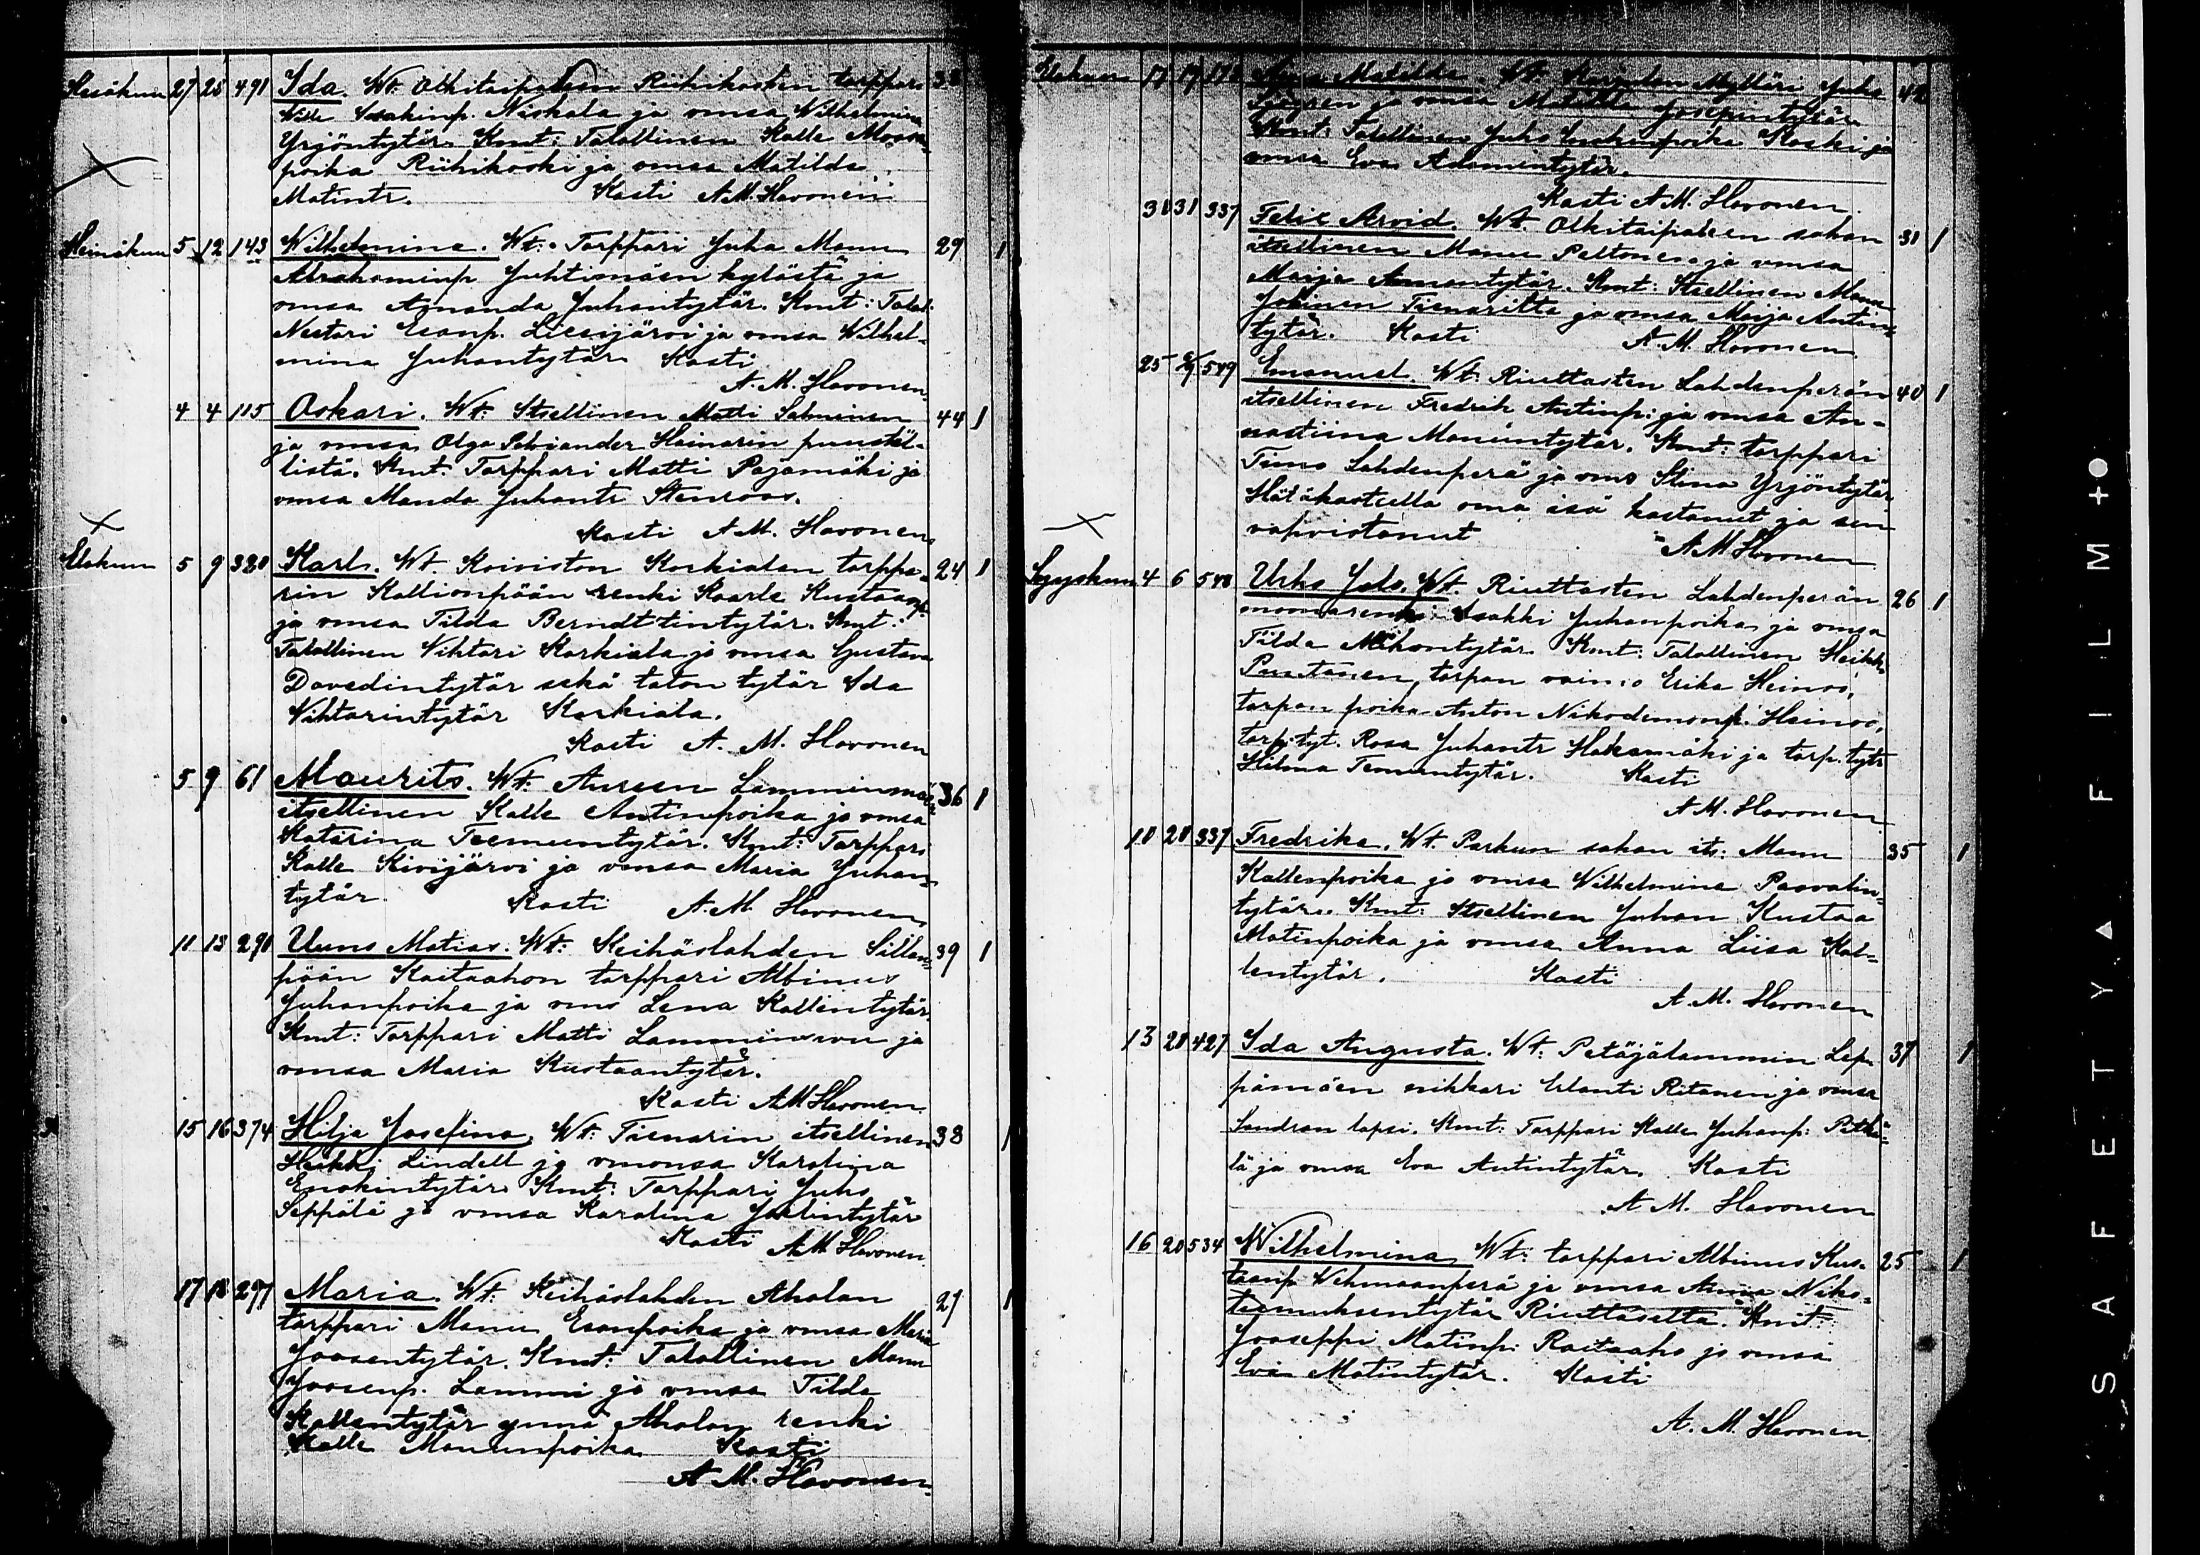 Kesäkuu 27 28 491 Ida. Wt. Olkitaipaleen Riihikosken torppari 38
Wille Isakinp. Niskala ja vmsa Wilhelmiina
Yrjöntytär. Kmt: Talollinen Kalle Moosen-
poika Riihikoski ja vmsa Matilda
Matintr. Kasti A.M. Havonen
Heinäkuu 5 12 143 Wilhelmina. Wt. Torppari Juha Manu 29 1
Abrahaminp Juhtimäen kylästä ja
vmsa Amanda Juhantytär. Kmt: Talol.
Nestori Esanp. Liesijärvi ja vmsa Wilhel-
mina Juhantytär Kasti
A. M. Havonen
4 4 115 Oskari. Wt: Itsellinen Matti Salminen 44 1
ja vmsa Olga Sahlander Hainarin puustel-
lista. Kmt: Torppari Matti Pajamäki ja
vmsa Manda Juhantr Stenroos.
Kasti A.M. Havonen
Elokuu 5 9 320 Karl. Wt Koiviston Korkialan torppa- 24 1
rin Kallionpään renki Kaarle Kustaanp.
ja vmsa Tilda Berndttintytär. Kmt:
Talollinen Vihtori Korkiala ja vmsa Gustava
Davedintytär sekä talon tytär Ida
Vihtorintytär Korkiala.
Kasti A. M. Havonen
5 9 61 Maurits. Wt. Aureen Lamminmäen 36 1
itsellinen Kalle Antinpoika ja vmsa
Katarina Teemuntytär. Kmt: Torppari
Kalle Kivijärvi ja vmsa Maria Juhan-
tytär. Kasti A.M. Havonen
11 13 290 Uuno Matias. Wt: Keihäslahden Sillan- 39 1
pään Raitaahon torppari Albinus
Juhanpoika ja vms Lena Kallentytär.
Kmt: Torppari Matti Lamminsivu ja
vmsa Maria Kustaantytär.
Kasti A.M. Havonen
15 16 374 Hilja Josefina. Wt: Tienarin itsellinen 38 1
Heikki Lindell ja vmonsa Karolina
Enokintytär Kmt: Torppari Juho
Seppälä ja vmsa Karolina Joelintytär
Kasti A.M. Havonen
17 18 297 Maria. Wt: Keihäslahden Aholan 29 1
torppari Manu Esanpoika ja vmsa Maria
Joosentytär. Kmt: Talollinen Manu
Joosenp. Lammi ja vmsa Tilda
Kallentytär ynnä Aholan renki
Kalle Manunpoika Kasti
A.M. Havonen
Elokuu 17 19 Matilda. Wt. Mylläri Juho 42
Sjögren ja vmsa Matilda Josepintytär
Kmt: Talollinen Juho poika Koski ja
vmsa Eva Adamintytär.
Kasti A.M. Havonen
31 31 337 Felix Arvid. Wt. Olkitaipaleen sahan 31 1
itsellinen Manu Peltonen ja vmsa
Maija Amentytär. Kmt: Itsellinen Manu
Jokinen Tienarilta ja vmsa Maija Antin-
tytär. Kasti A.M. Havonen
25 549 Emanuel. Wt. Riuttasten Lahdenperän 40 1
itsellinen Fredrik Antinp. ja vmsa An-
nastiina Manuntytär. Kmt: torppari
Timo Lahdenperä ja vms Stina Yrjöntytär
Hätäkasteella oma isä kastanut ja sen
vahvistanut A M Havonen
Syyskuu 4 6 548 Urho Jalo. Wt. Riuttasten Lahdenperän 26 1
muonarenki Isakki Juhanpoika ja vmsa
Tilda Mikontytär. Kmt: Talollinen Heikki
Puntanen, torpan vaimo Erika Heinoo,
torpan poika Anton Nikodemonp. Heinoo,
torp. tyt. Rosa Juhantr Hakamäki ja torp. tytr
Hilma Teemuntytär. Kasti
A.M. Havonen
10 20 337 Fredrika. Wt. Parkun sahan its: Manu 35 1
Kallenpoika ja vmsa Wilhelmina Paavalin-
tytär. Kmt: Itsellinen Juhan Kustaa
Matinpoika ja vmsa Anna Liisa Kal-
lentytär. Kasti
A.M. Havonen
13 20 427 Ida Augusta. Wt: Petäjälammin Lep- 37 1
pämäen nikkari Erlanti Ritanen ja vmsa
Sandran lapsi. Kmt: Torppari Kalle Juhanp: Pitkä-
lä ja vmsa Eva Antintytär. Kasti
A.M. Havonen
16 20 534 Wilhelmina Wt: torppari Albinus Kus- 25 1
taanp Vehmaanperä ja vmsa Anna Niko-
temuksentytär Riuttaselta. Kmt:
Jooseppi Matinp. Raitaaho ja vmsa
Eva Matintytär. Kasti
A. M. Havonen
SAFETY▲FILM+●